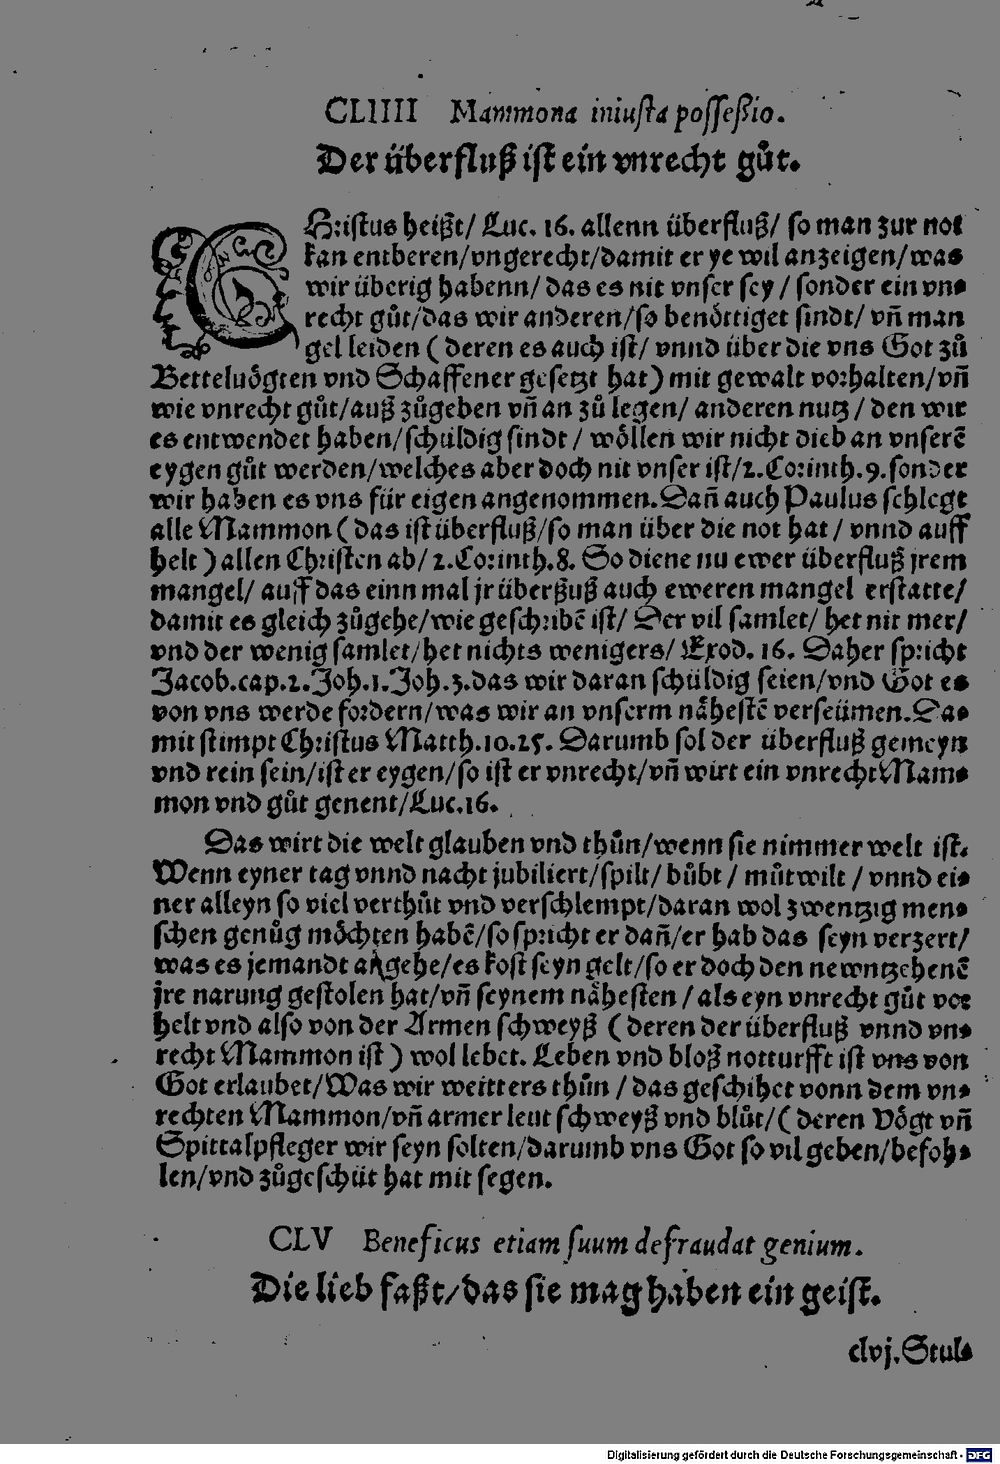 CLIIII Mammona iniusta possessio.
Der überfluß ist ein vnrecht gůt.
CHristus heißt/ Luc. 16. allenn überfluß/ so man zur not
kan entberen/vngerecht/damit er ye wil anzeigen/was
wir überig habenn/ das es nit vnser sey / sonder ein vn⸗
recht gůt/das wir anderen/so benöttiget sindt/ vñ man
gel leiden ( deren es auch ist/ vnnd über die vns Got zů
Betteluögten vnd Schaffener gesetzt hat) mit gewalt vorhalten/vñ
wie vnrecht gůt/auß zůgeben vñ an zů legen/ anderen nutz / den wir
es entwendet haben/schüldig sindt / wöllen wir nicht dieb an vnserē
eygen gůt werden/welches aber doch nit vnser ist/2.Corinth.9.sonder
wir haben es vns für eigen angenommen. Dañ auch Paulus schlegt
alle Mammon ( das ist überfluß/so man über die not hat / vnnd auff
helt ) allen Christen ab/ 2.Corinth.8. So diene nu ewer überfluß jrem
mangel/ auff das einn mal jr überßuß auch eweren mangel erstatte/
damit es gleich zůgehe/wie geschribē ist/ Der vil samlet/ het nit mer/
vnd der wenig samlet/het nichts wenigers/ Exod. 16. Daher spricht
Jacob.cap.2.Joh.1.Joh.3.das wir daran schüldig seien/vnd Got es
von vns werde fordern/was wir an vnserm nähestē verseümen.Da⸗
mit stimpt Christus Matth.10.25. Darumb sol der überfluß gemeyn
vnd rein sein/ist er eygen/so ist er vnrecht/vñ wirt ein vnrecht Mam⸗
mon vnd gůt genent/Luc.16.
Das wirt die welt glauben vnd thůn/wenn sie nimmer welt ist.
Wenn eyner tag vnnd nacht jubiliert/spilt/ bůbt / můtwilt / vnnd ei⸗
ner alleyn so viel verthůt vnd verschlempt/daran wol zwentzig men⸗
schen genůg möchten habē/so spricht er dañ/er hab das seyn verzert/
was es jemandt angehe/es kost seyn gelt/so er doch den newntzehenē
jre narung gestolen hat/vñ seynem nähesten / als eyn vnrecht gůt vor
helt vnd also von der Armen schweyß ( deren der überfluß vnnd vn⸗
recht Mammon ist ) wol lebet. Leben vnd bloß notturfft ist vns von
Got erlaubet/Was wir weitters thůn / das geschihet vonn dem vn⸗
rechten Mammon/vñ armer leut schweyß vnd blůt/( deren Vögt vñ
Spittalpfleger wir seyn solten/darumb vns Got so vil geben/befoh⸗
len/vnd zůgeschüt hat mit segen.
CLV Beneficus etiam suum defraudat genium.
Die lieb faßt/das sie mag haben ein geist.
clvj.Stul⸗
Digitalisierung gefördert durch die Deutsche Forschungsgemeinschaft - DFG